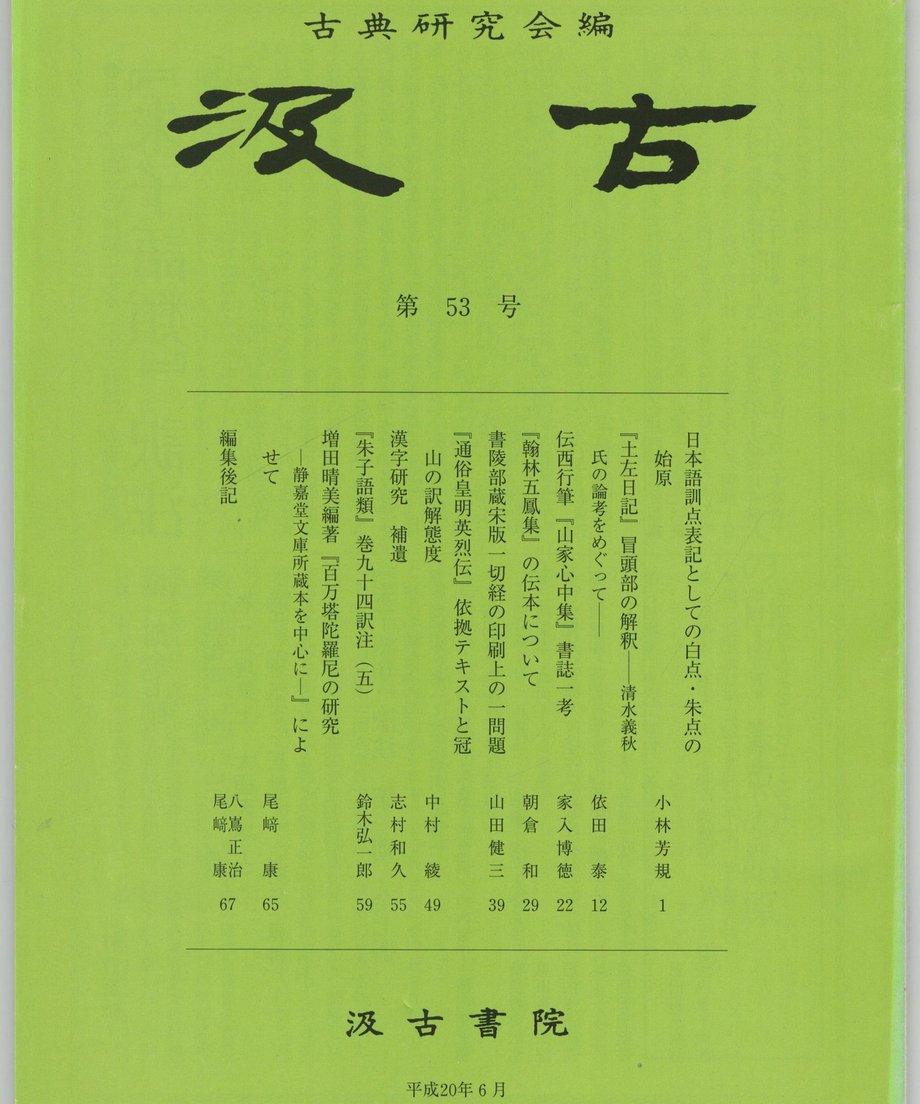 古典研究会編
汲古
第 53 号
日本語訓点表記としての白点・朱点の
始原
小林芳規
1
『土左日記』冒頭部の解釈――清水義秋
氏の論考をめぐって――
依田 泰
12
伝西行筆『山家心中集』書誌一考
家入博徳
22
『翰林五鳳集』の伝本について
朝倉 和
29
書陵部蔵宋版一切経の印刷上の一問題
山田健三
39
『通俗皇明英烈伝』依拠テキストと冠
山の訳解態度
中村 綾
49
漢字研究 補遺
志村和久
55
『朱子語類』巻九十四訳注（五）
鈴木弘一郎
59
増田晴美編著『百万塔陀羅尼の研究
―静嘉堂文庫所蔵本を中心に―』によ
せて
尾﨑 康
65
編集後記
八嶌正治
尾﨑 康
67
汲古書院
平成20年6月